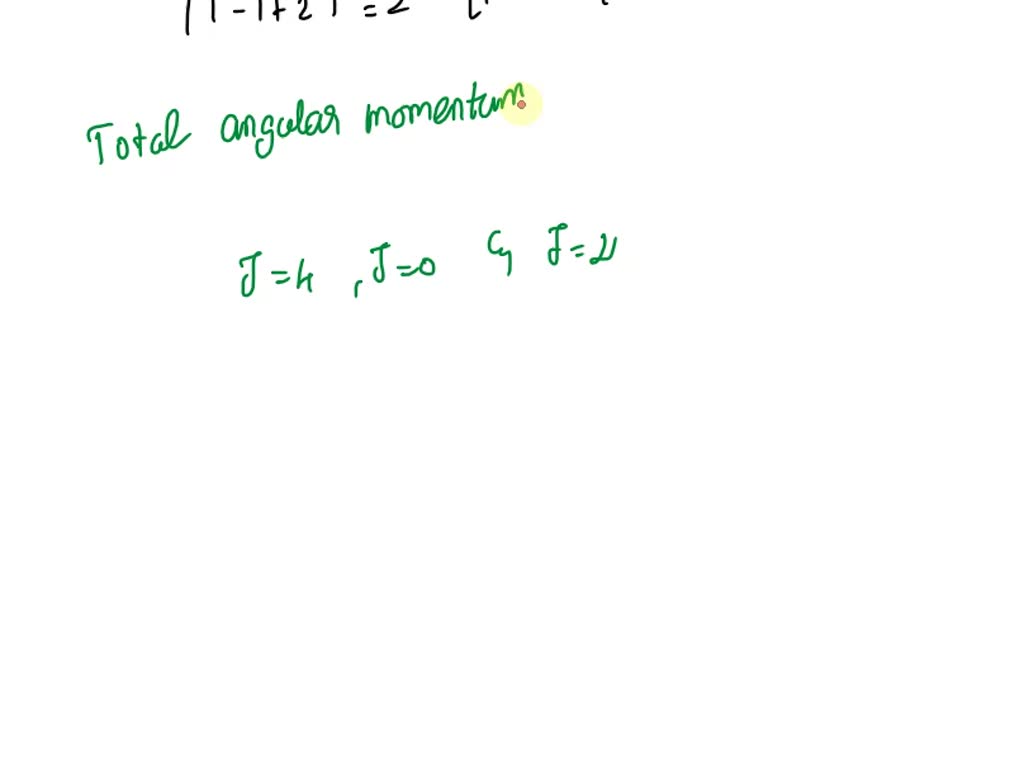 |1-1+2| = 2
Total angular momentum
J=4, J=0 & J=2